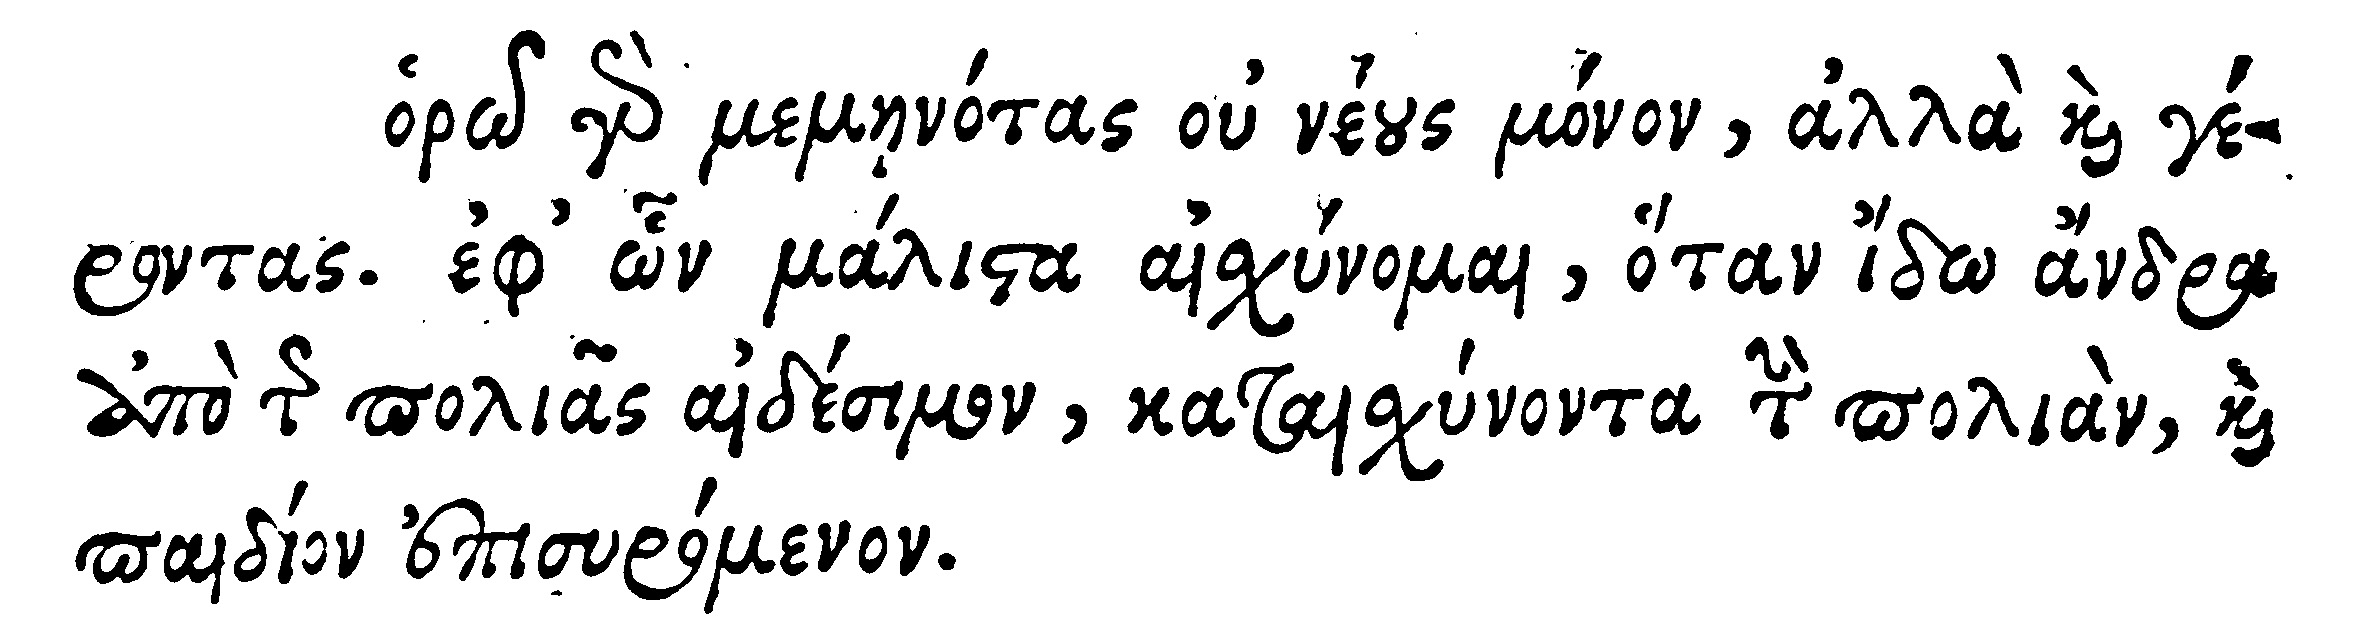 ὁρῶ γὰρ μεμηνότας οὐ νέους μόνον, ἀλλὰ καὶ γέ-
ροντας. ἐφ᾽ ὧν μάλιστα αἰσχύνομαι, ὅταν ἴδω ἄνδρα
ἀπὸ τῆς πολιᾶς αἰδέσιμον, καταισχύνοντα τὴν πολιὰν, καὶ
παιδίον ἐπισυρόμενον.